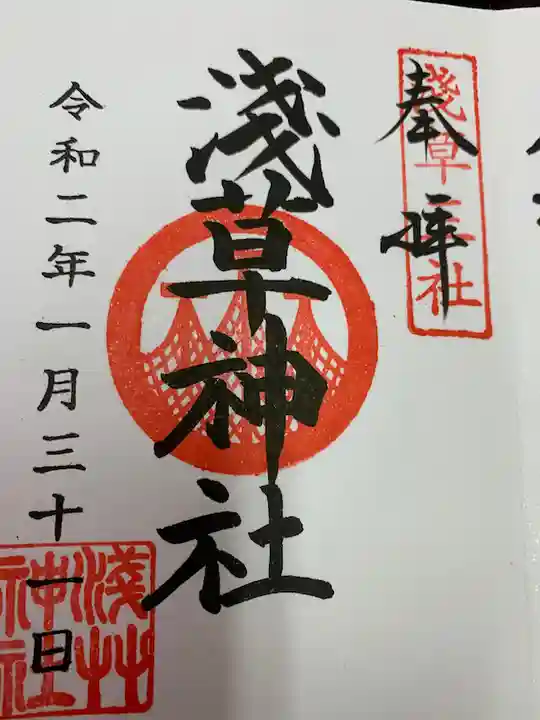 奉拝
淺草三社
淺草神社
令和二年一月三十一日
淺草
神社